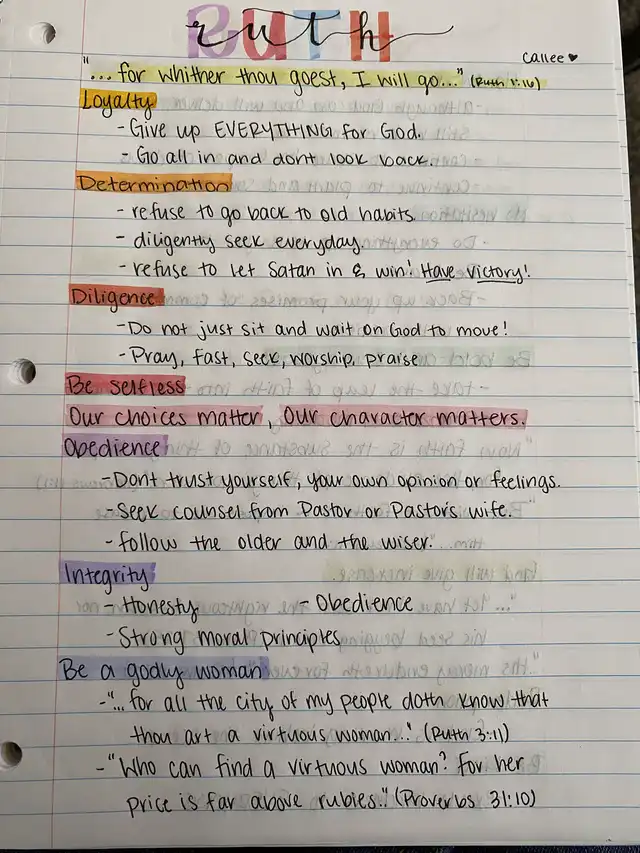 RUTH
ruth
Callee ♥
"...for whither thou goest, I will go..." (Ruth 1:16)
Loyalty
- Give up EVERYTHING for God.
- Go all in and dont look back.
Determination
- refuse to go back to old habits.
- diligently seek everyday.
- refuse to let Satan in & win! Have victory!
Diligence
- Do not just sit and wait on God to move!
- Pray, Fast, Seek, worship, praise
Be selfless
Our choices matter, Our character matters.
Obedience
- Dont trust yourself, your own opinion or feelings.
- Seek counsel from Pastor or Pastor's wife.
- follow the older and the wiser.
Integrity
- Honesty - Obedience
- Strong moral principles
Be a godly woman
- "...for all the city of my people doth know that
thou art a virtuous woman..." (Ruth 3:11)
- "Who can find a virtuous woman? For her
price is far above rubies." (Proverbs 31:10)